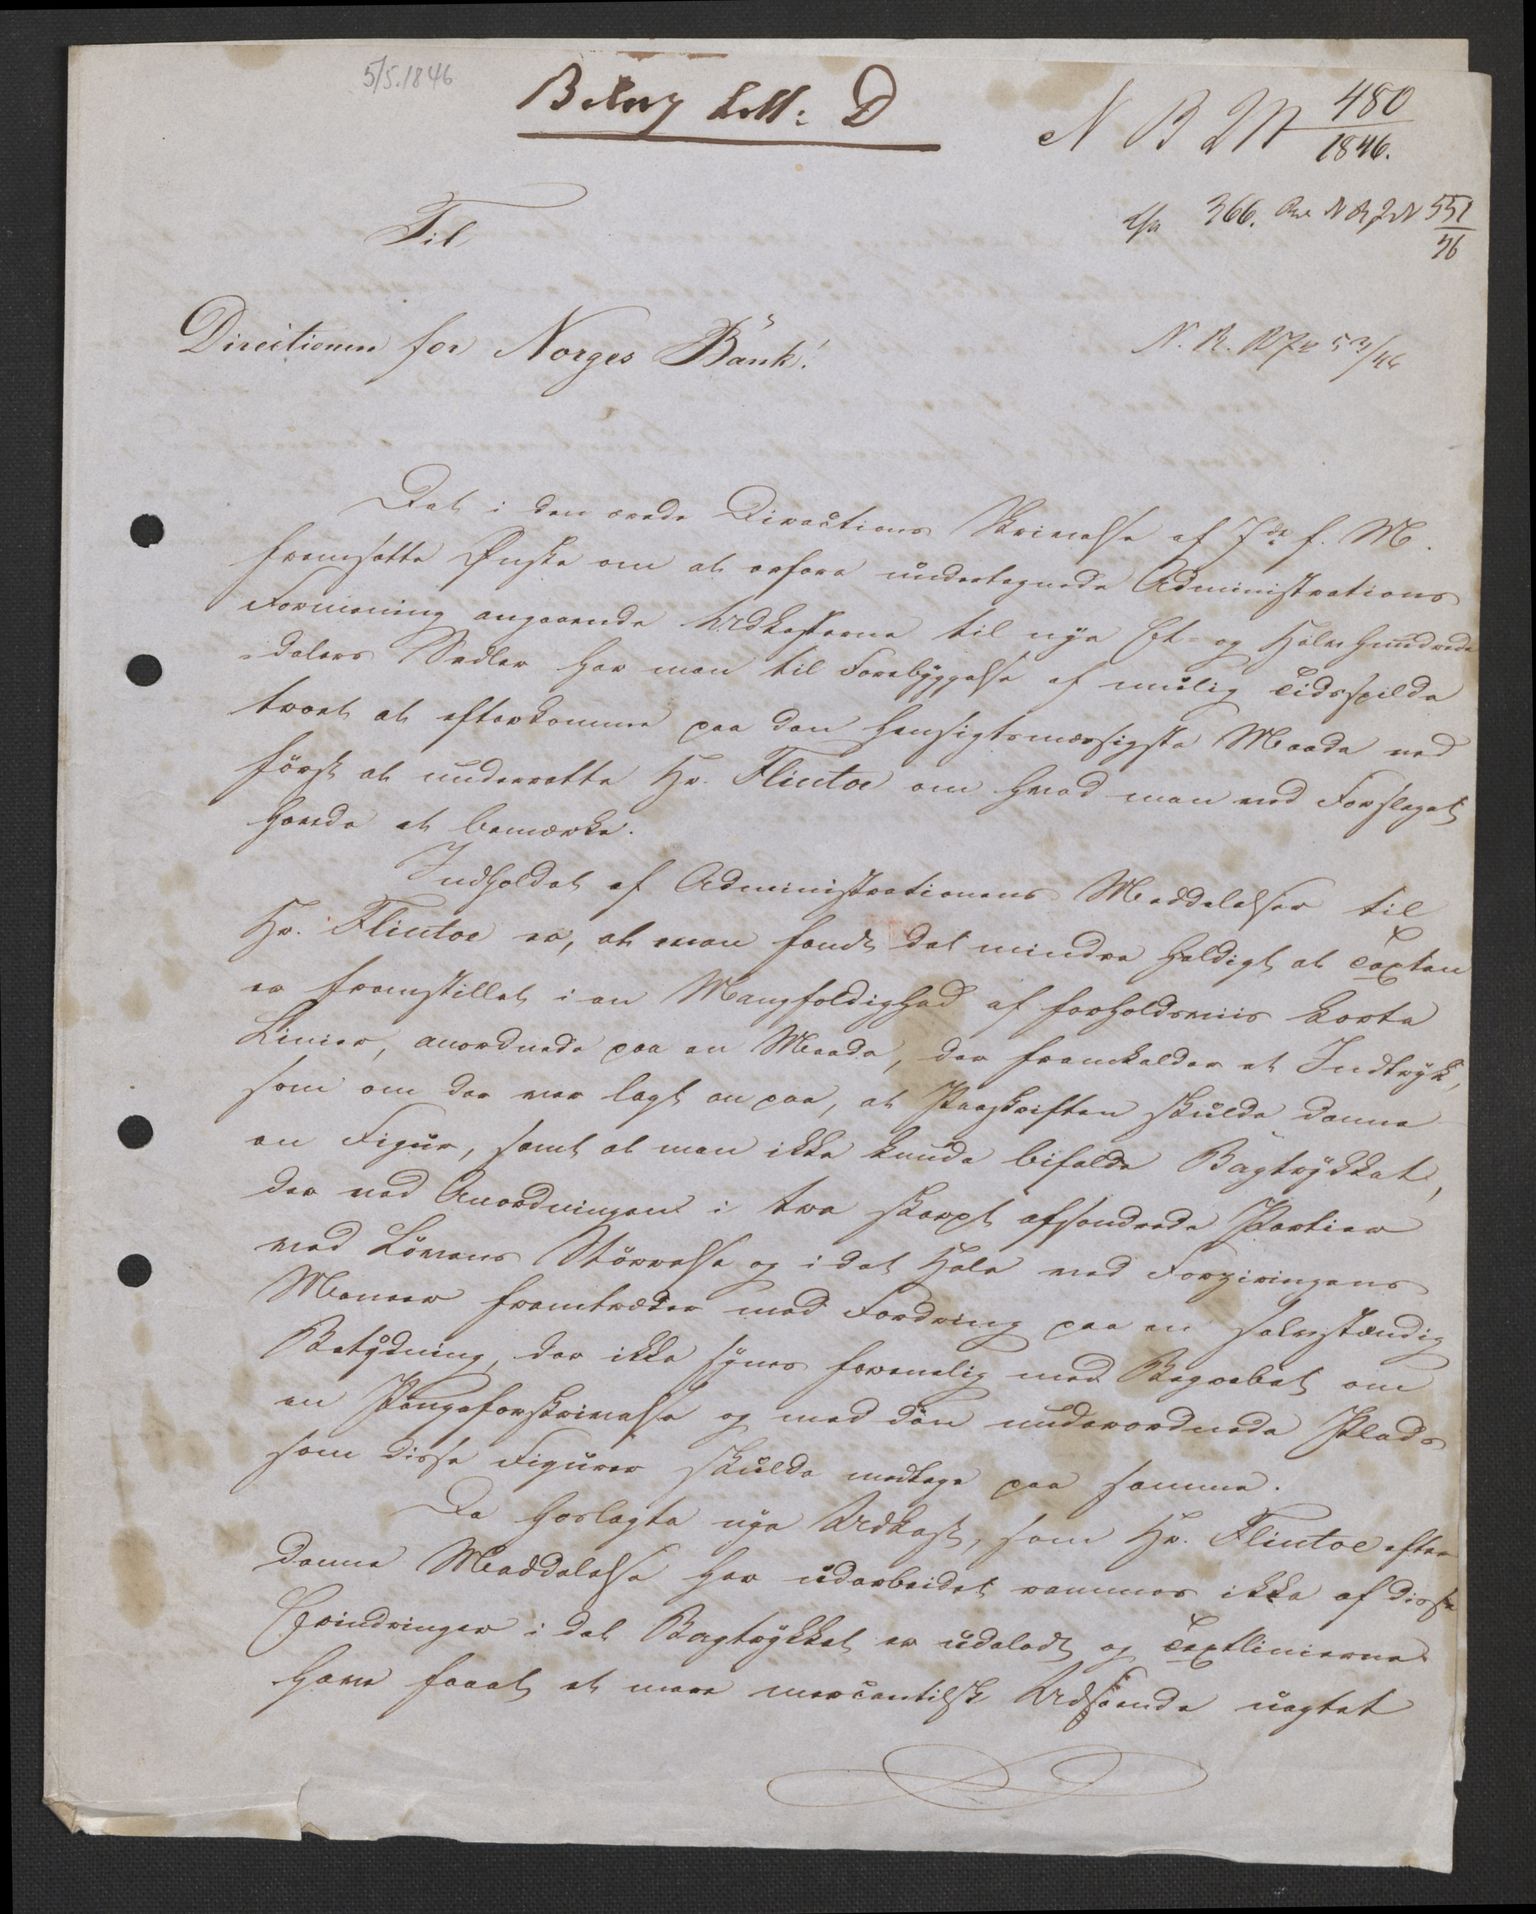 5/5.1846
Bilag Litt: D
N B M 480/1846.
366. N B 551/46
Til
Directionen for Norges Bank!
N. B. 53/46
Det i den ærede Directions Skrivelse af 7de f. M.
fremsatte Ønske om at erfare undertegnede Administrations
Formening angaaende Udkasterne til nye Et- og Halvhundrede
-dalers Sedler har man til Forebyggelse af mulig Tidsspilde
troet at efterkomme paa den hensigtsmæssigste Maade ved
først at underrette Hr. Flintoe om hvad man ved Forslaget
havde at bemærke.
Indholdet af Administrationens Meddelelser til
Hr. Flintoe er, at man fandt det mindre heldigt at Texten
er fremstillet i en Mangfoldighed af forholdsviis korte
Linier, anordnede paa en Maade, der fremkalder et Indtryk,
som om der var lagt an paa, at Paaskriften skulde danne
en Figur, samt at man ikke kunde bifalde Bagtrykket,
der ved Anordningen i tre skarpt afsondrede Partier
ved Lövens Störrelse og i det Hele ved Forziringens
Maneer fremtræder med Fordring paa en selvstændig
Betydning, der ikke synes forenelig med Begrebet om
en Pengeforskrivelse og med den underordnede Plads
som disse Figurer skulde medtage paa samme.
De hoslagte nye Udkast, som Hr. Flintoe efter
denne Meddelelse har udarbeidet rammes ikke af disse
Erindringer i det Bagtrykket er udeladt og Textlinierne
have faaet et mere mercantilsk Udseende uagtet